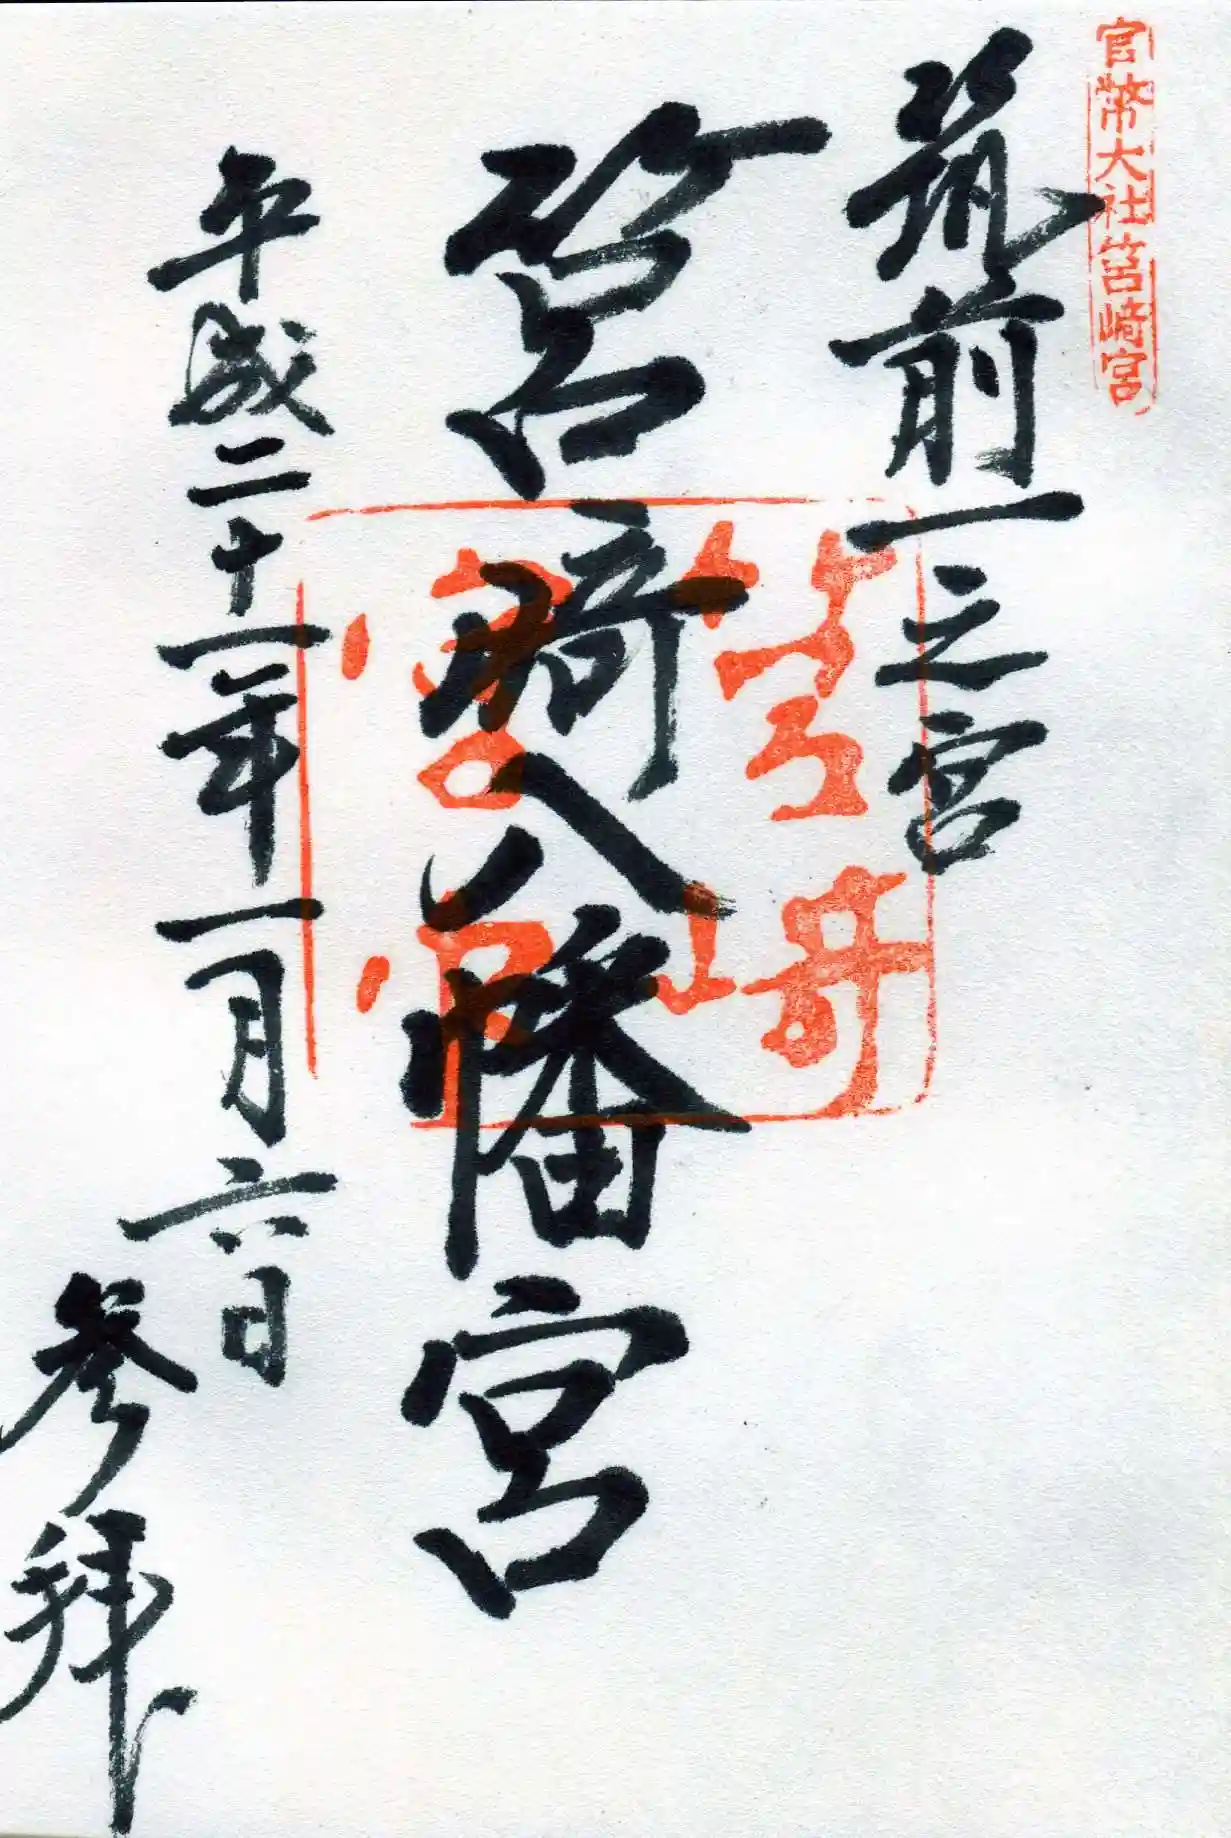 官幣大社筥崎宮
筑前一之宮
筥崎八幡宮
筥崎
宮印
平成二十一年一月六日
参拜